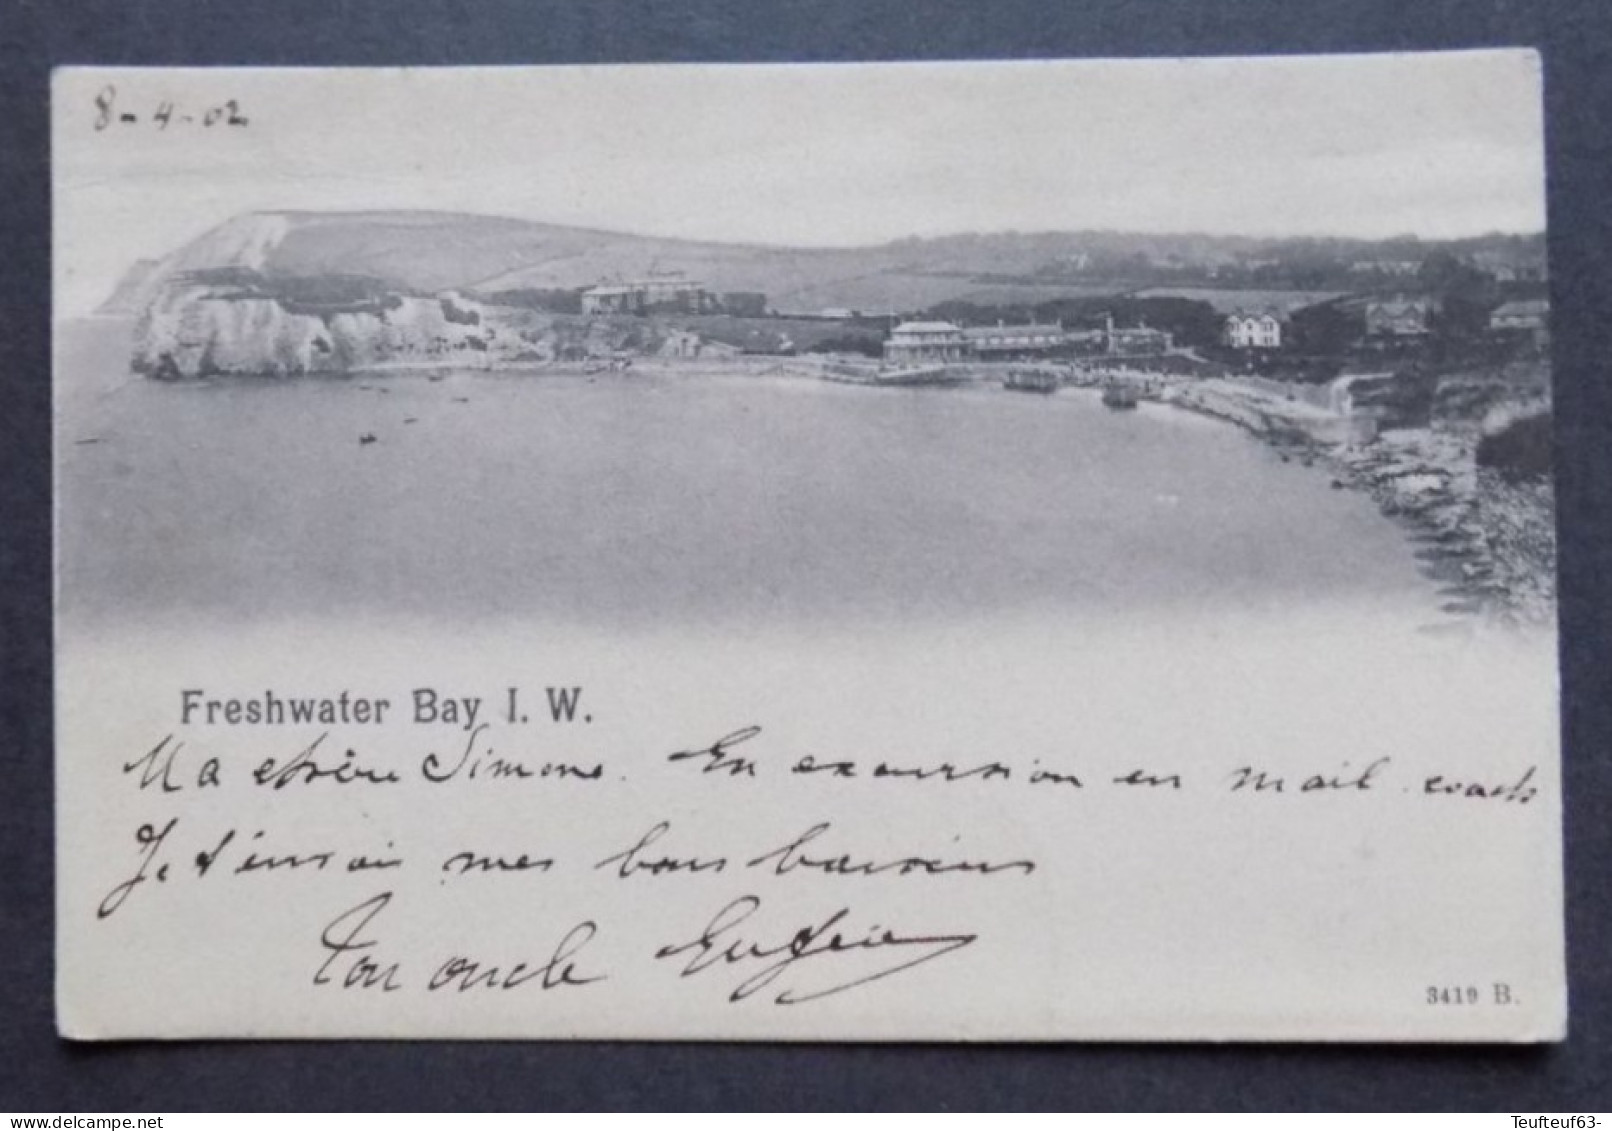 8-4-02
Freshwater Bay I. W.
Ma chère Simone. En excursion en mail coach
Je t'envoie mes bons baisers
Ton oncle Eugène
3419 B.
delcampe.net
Teufteuf63-